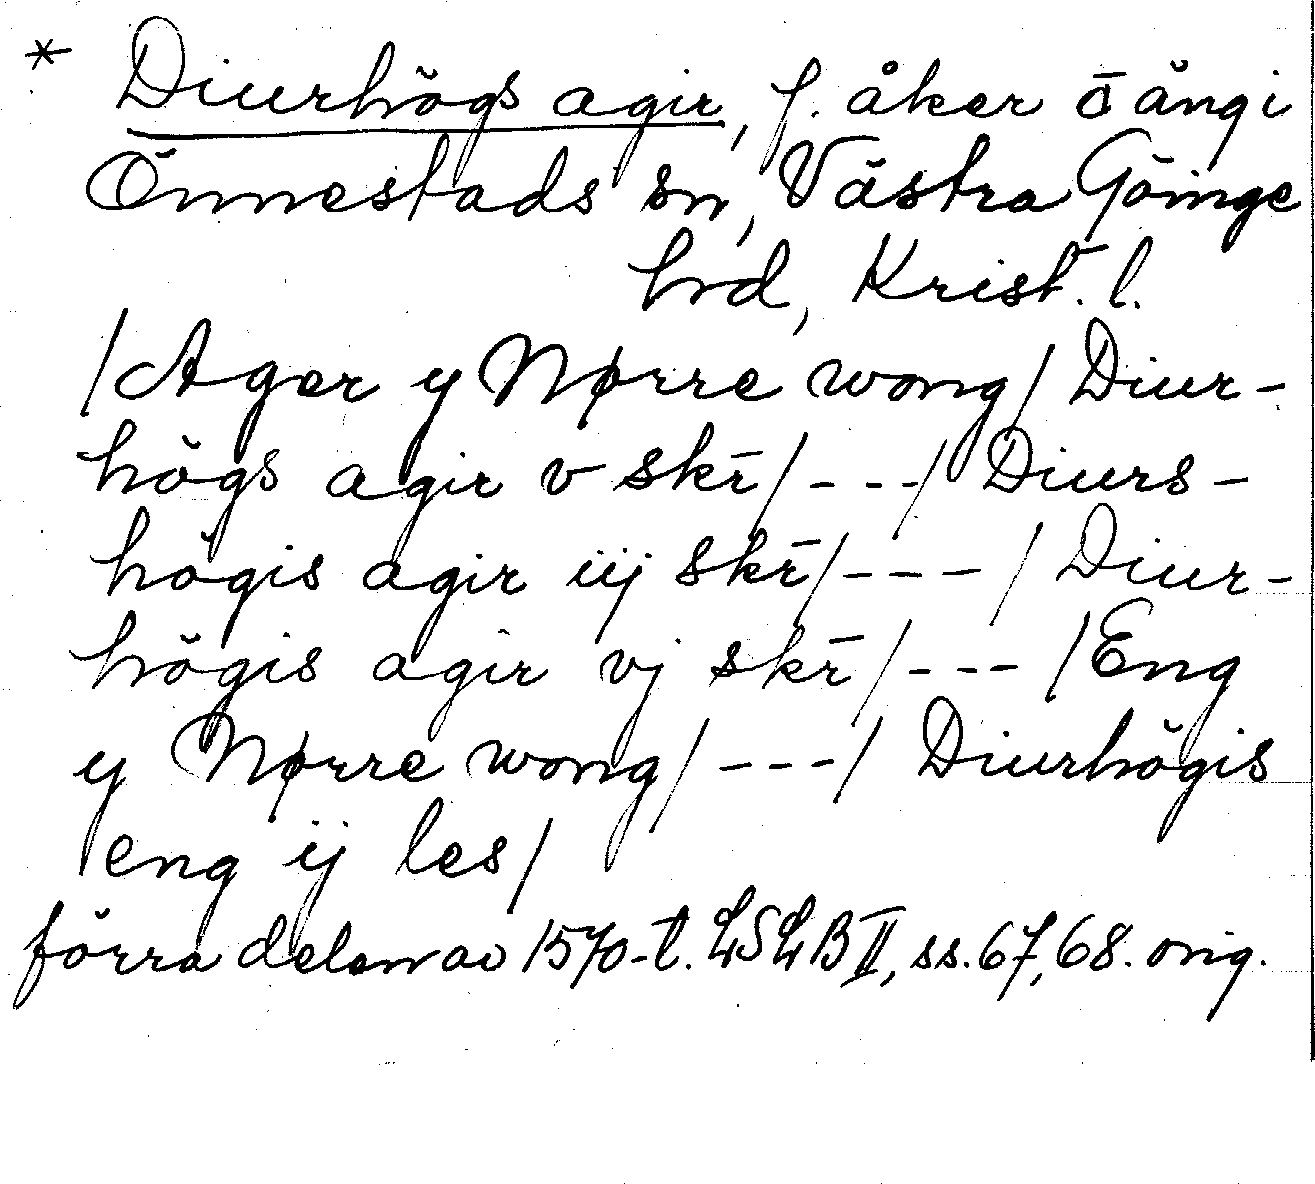 * Diurhögs agir, f. åker o ängi
Önnestads sn, Västra Göinge
hd, Krist. l.
/Ager y Nørre wong/ Diur-
högs agir v skr̄/---/ Diurs-
högis agir iij skr̄/---/ Diur-
högis agir vj skr̄/---/Eng
y Nørre wong/---/ Diurhögis
eng ij les/
förra delen av 1570-t. LSLB II, ss. 67, 68. orig.